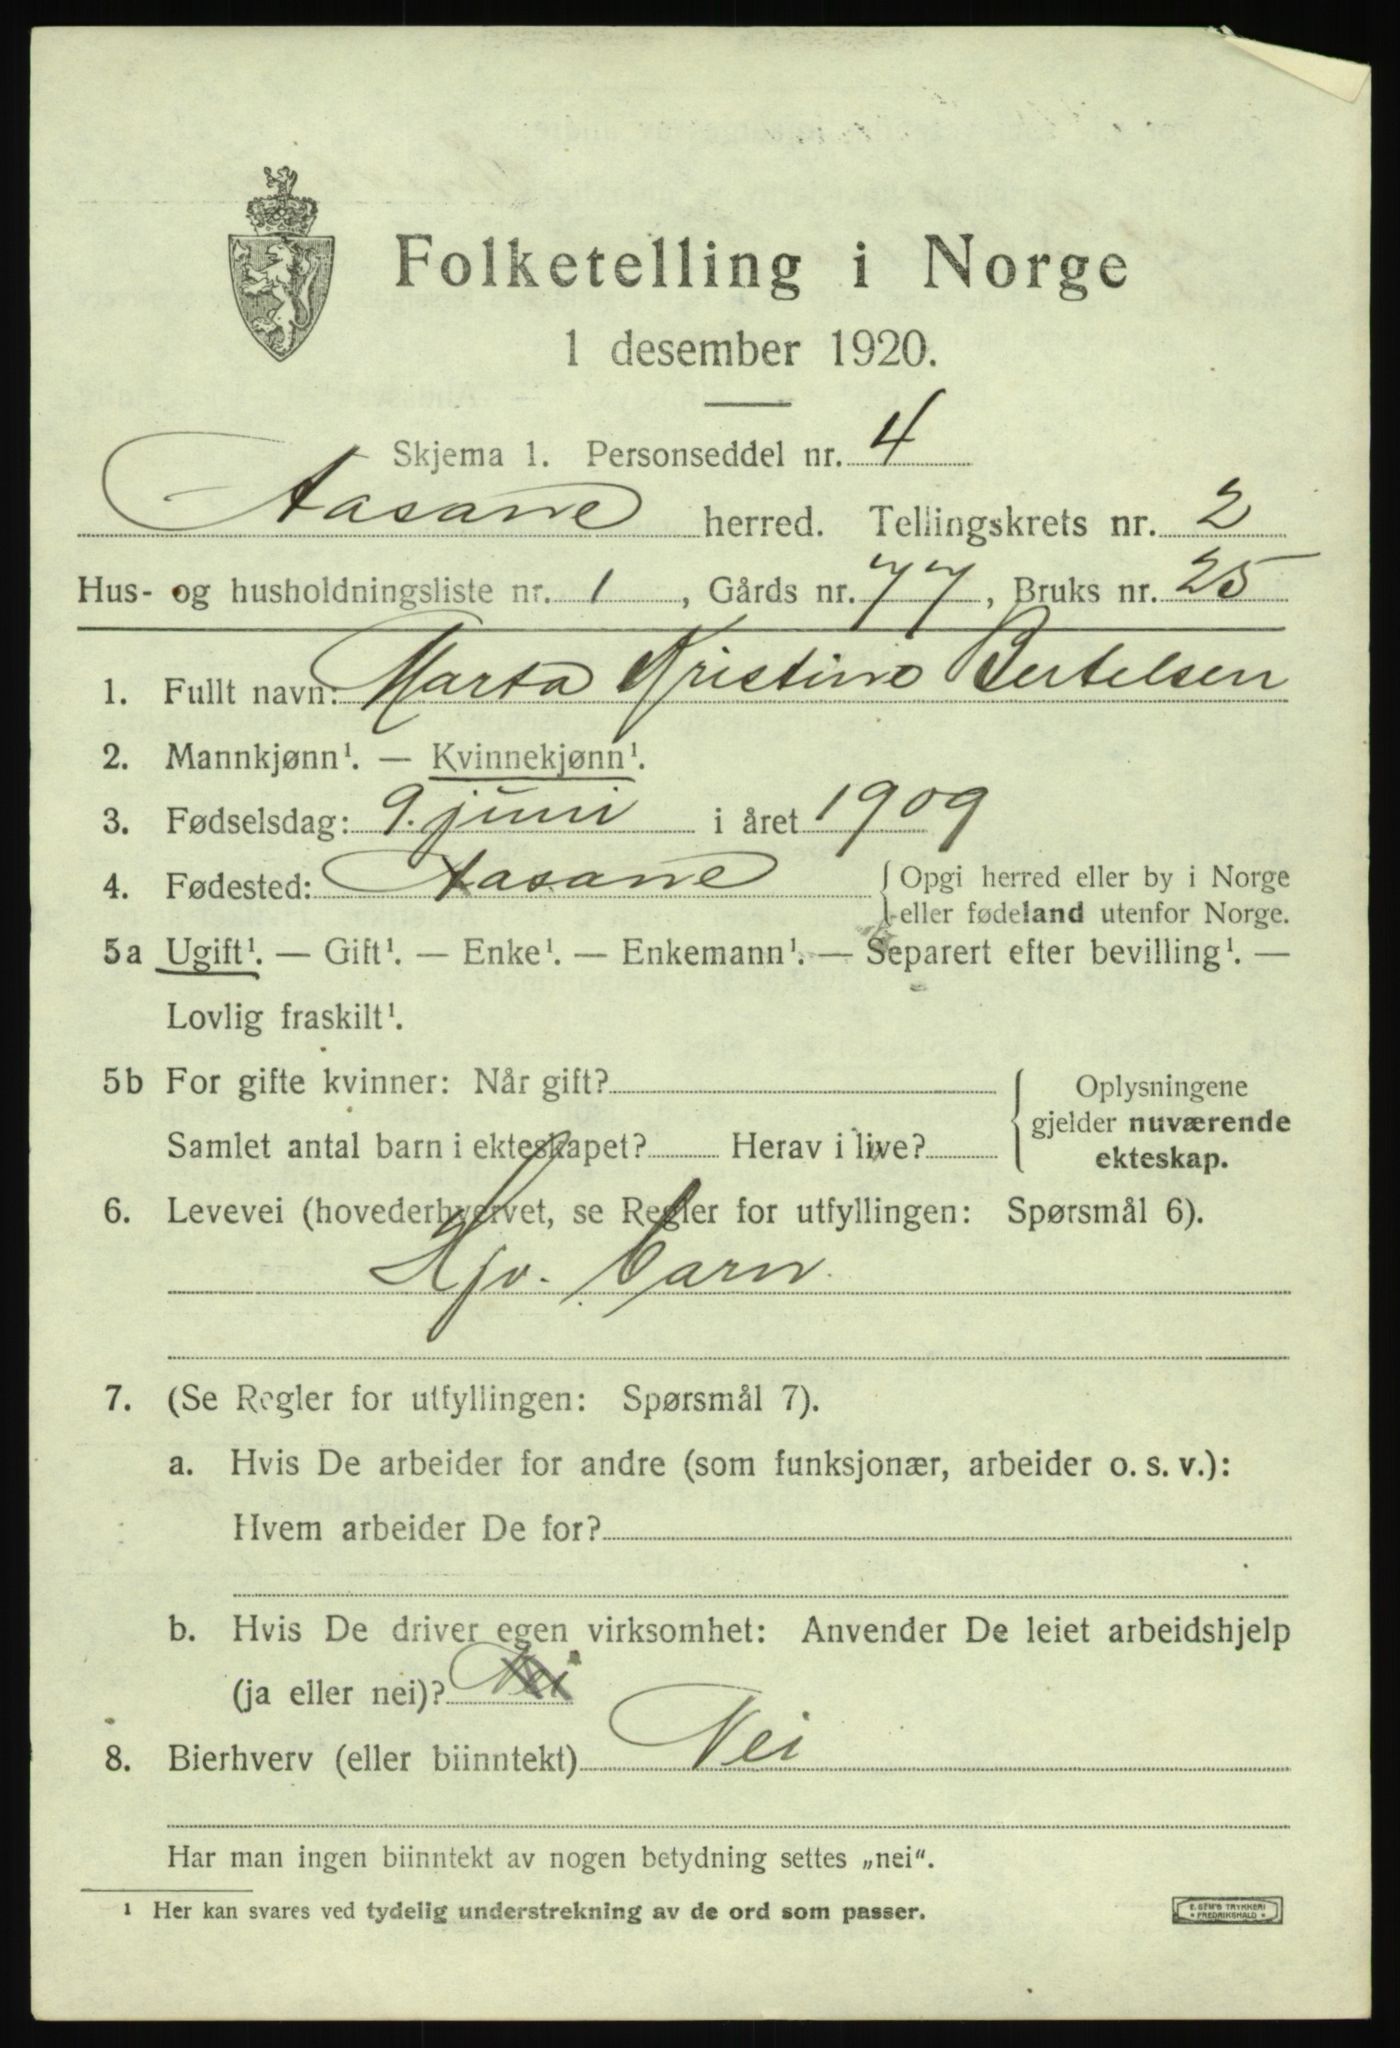 Folketelling i Norge
1 desember 1920.
Skjema 1. Personseddel nr. 4
Aasane herred. Tellingskrets nr. 2
Hus- og husholdningsliste nr. 1, Gårds nr. 77, Bruks nr. 25
1. Fullt navn: Marta Kristine Bertelsen
2. Mannkjønn¹. — Kvinnekjønn¹.
3. Fødselsdag: 9. juni i året 1909
4. Fødested: Aasane { Opgi herred eller by i Norge
eller fødeland utenfor Norge.
5a Ugift¹. — Gift¹. — Enke¹. — Enkemann¹. — Separert efter bevilling¹. —
Lovlig fraskilt¹.
5b For gifte kvinner: Når gift?
Samlet antal barn i ekteskapet? Herav i live?
{ Oplysningene
gjelder nuværende
ekteskap.
6. Levevei (hovederhvervet, se Regler for utfyllingen: Spørsmål 6).
Hjv. barn
7. (Se Regler for utfyllingen: Spørsmål 7).
a. Hvis De arbeider for andre (som funksjonær, arbeider o. s. v.):
Hvem arbeider De for?
b. Hvis De driver egen virksomhet: Anvender De leiet arbeidshjelp
(ja eller nei)? Nei
8. Bierhverv (eller biinntekt) Nei
Har man ingen biinntekt av nogen betydning settes „nei“.
¹ Her kan svares ved tydelig understrekning av de ord som passer.
E. SEM'S TRYKKERI
* FREDRIKSHALD *